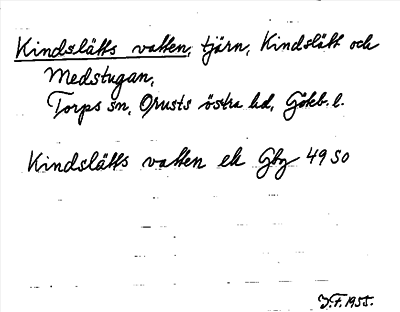 Kindslätts vatten, tjärn, Kindslätt och
Medstugan,
Torps sn, Orusts östra hd, Göteb. l.
Kindslätts vatten ek Gbg 49 SO
J.F. 1955.